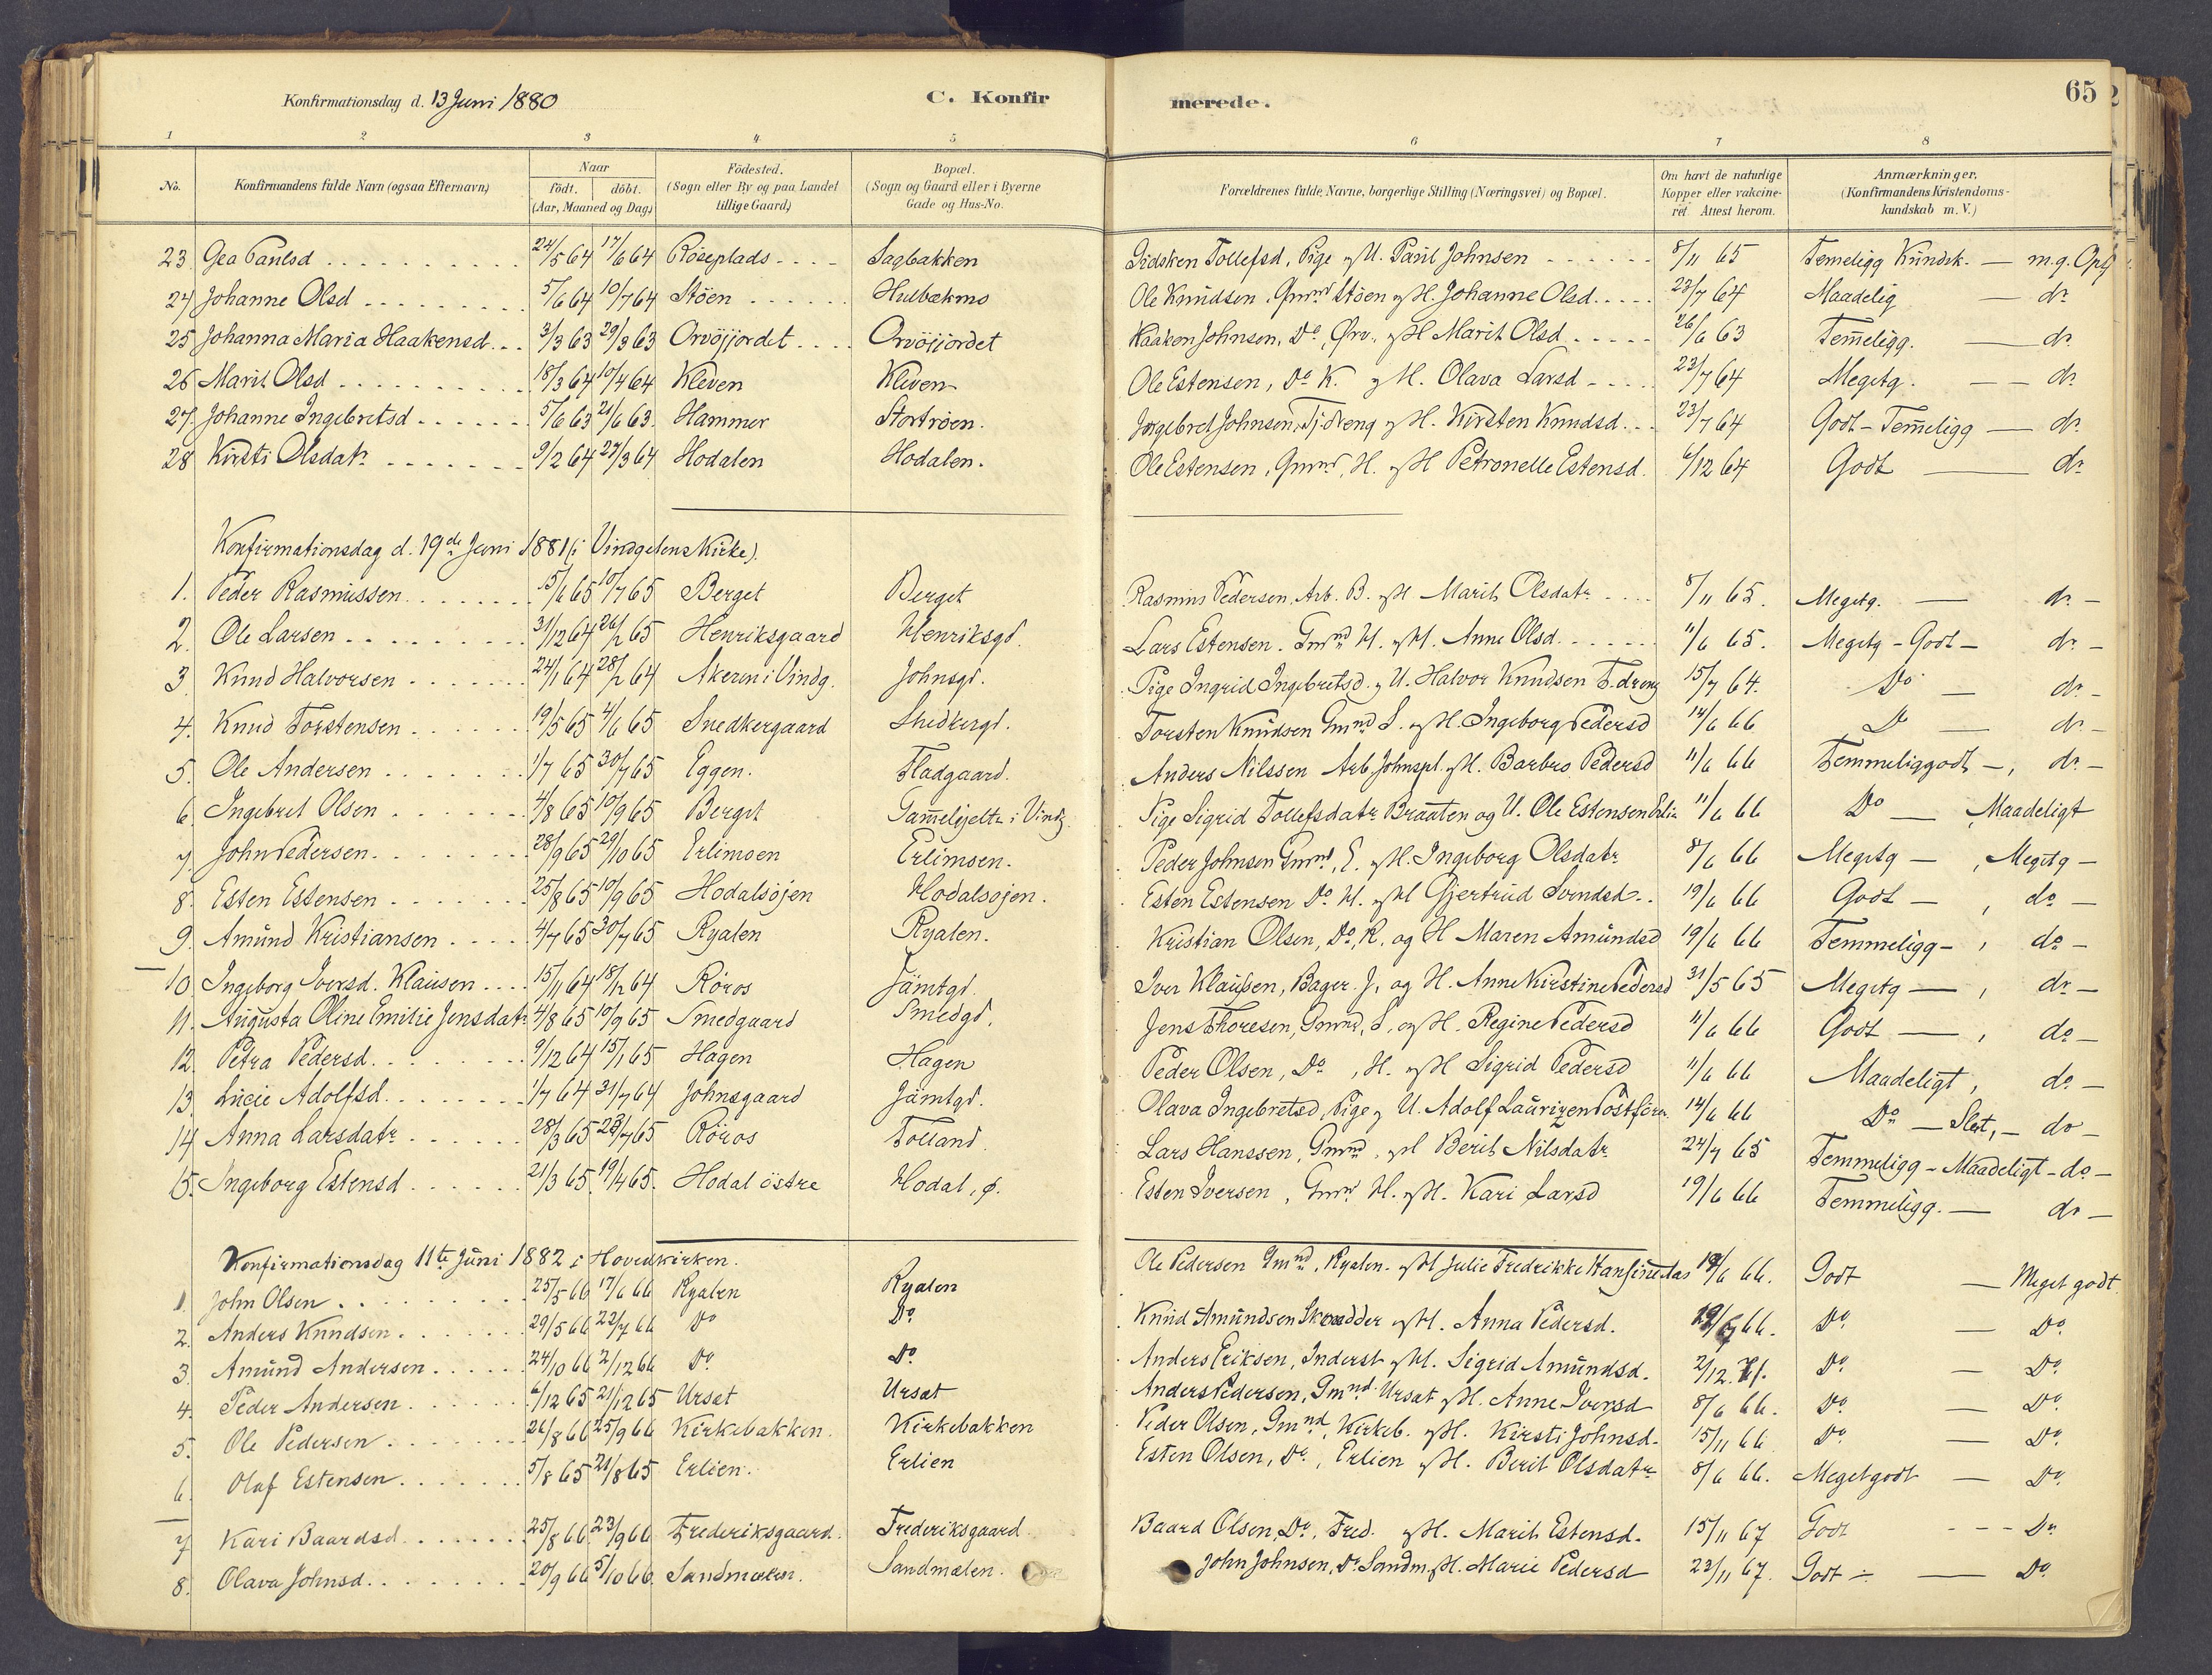 Konfirmationsdag d. 13 Juni 1880 C. Konfirmerede. 65
1 2 3 4 5 6 7 8
No. Konfirmandens fulde Navn (ogsaa Efternavn) Naar födt. döbt. (Aar, Maaned og Dag) Födested. (Sogn eller By og paa Landet tillige Gaard) Bopæl. (Sogn og Gaard eller i Byerne Gade og Hus-No. Forældrenes fulde Navne, borgerlige Stilling (Næringsvei) og Bopæl. Om havt de naturlige Kopper eller vakcineret. Attest herom. Anmærkninger. (Konfirmandens Kristendomskundskab m. V.)
23. Gea Paulsd 24/5 64 17/6 64 Röseplads Sagbakken Sidsken Tollefsd, Pige og U. Paul Johnsen 8/11 65 Temeligg Kundsk. — m.g.
24 Johanne Olsd 5/6 64 10/7 64 Stöen Hulbækmo Ole Knudsen, Gmnd Stöen og H. Johanne Olsd. 23/7 64 Maadelig — do
25 Johanna Maria Haakensd. 3/3 63 29/3 63 Orvöjjordet Orvöjjordet Haaken Johnsen, Do, Ørv., og H Marit Olsd 26/6 63 Temeligg. — do
26 Marit Olsd 18/3 64 10/4 64 Kleven Kleven Ole Estensen, Do K. og H. Olava Larsd 23/7 64 Megetg. — do
27. Johanne Ingebretsd 5/6 63 21/6 63. Hammer Stortröen. Ingebret Johnsen, Tj.dreng og H. Kirsten Knudsd. 23/7 64 Godt - Temeligg — do
28 Kirsti Olsdatr 9/2 64 27/3 64 Hodalen Hodalen. Ole Estensen, Gmnd, H. og H Petronelle Estensd. 6/12 64 Godt — do
Konfirmationsdag d. 19de Juni 1881 (i Vindgelens Kirke).
1. Peder Rasmussen 15/6 65 10/7 65 Berget Berget Rasmus Pedersen, Arb. B. og H Marit Olsdatr 8/11 65. Megetg. — do —
2. Ole Larsen 31/12 64 26/2 65 Henriksgaard Henriksgd. Lars Estensen. Gmnd H. og H. Anne Olsd. 11/6 65. Megetg - Godt — do —
3 Knud Halvorsen 24/1 64 28/2 64 Akeren i Vindg. Johnsgd. Pige Ingrid Ingebretsd. og U. Halvor Knudsen T.dreng 15/7 64. Do — do —
4. Knud Torstensen 19/5 65 4/6 65 Snedkergaard Snedkergd. Torsten Knudsen Gmnd S. og H. Ingeborg Pedersd 14/6 66 Do — do —
5. Ole Andersen 1/7 65 30/7 65 Eggen. Fladgaard. Anders Nilssen Arb. Johnspl. og H. Barbro Pedersd 11/6 66 Temmeliggodt —, do —
6. Ingebret Olsen 4/8 65 10/9 65 Berget Pige Sigrid Tollefsdatr Braaten og U. Ole Estensen 11/6 66 Do — Maadeligt
7. John Pedersen. 28/9 65 29/10 65 Erlimoen Erlimoen. Peder Johnsen Gmnd, E. og H. Ingeborg Olsdatr 8/6 66 Megetg —, Megetg —
8. Esten Estensen 25/8 65 10/9 65 Hodalsöjen Hodalsojen. Esten Estensen Do. H. og H Gjertrud Svendsd. 19/6 66 Godt —, do —
9. Amund Kristiansen 4/7 65 30/7 65 Ryalen Ryalen. Kristian Olsen, Do, R. og H Maren Amundsd 19/6 66 Temmeligg —, do —
10. Ingeborg Iversd. Klausen 15/11 64 18/12 64 Röros Jämtgd. Iver Klausen, Bager. J., og H. Anne Kirstine Pedersd 31/5 65 Megetg —, do —
11. Augusta Oline Emilie Jensdatr 4/8 65 10/9 65 Smedgaard Smedgd. Jens Thoresen, Gmnd, S. og H. Regine Pedersd 11/6 66 Godt —, do —
12. Petra Pedersd. 9/12 64 15/1 65 Hagen Hagen Peder Olsen, Do, H. og H Sigrid Pedersd 11/6 66 Maadeligt, do —
13. Lucie Adolfsd. 1/7 64 31/7 64 Johnsgaard Jämtgd. Olava Ingebretsd, Pige og U. Adolf Laurizen 14/6 66 Do — Slet, — do —
14. Anna Larsdatr 28/3 65 23/7 65 Röros Tolland. Lars Hanssen, Gmnd, og H Berit Nilsdatr 24/7 65 Temmeligg — Maadeligt — do —
15. Ingeborg Estensd 21/3 65. 19/4 65. Hodal östre Hodal, ø. Esten Iversen, Gmnd H. og H. Kari Larsd 19/6 66 Temmeligg. — do —
Konfirmationsdag 11te Juni 1882 i Hovedkirken.
1. John Olsen 25/5 66 17/6 66 Ryalen Ryalen Ole Pedersen Gmnd, Ryalen. og H Julie Fredrikke 19/6 66. Godt — Meget godt
2. Anders Knudsen 29/5 66 22/7 66 Do Do. Knud Amundsen Skrædder og H. Anna Pedersd. 66. Do. — Do.
3. Amund Andersen 24/10 66 2/12 66 Do. Do. Anders Eriksen, Inderst og H. Sigrid Amundsd. 2/12 Do. — Do.
4. Peder Andersen 6/12 65 21/12 65 Ursæt Ursæt Anders Pedersen, Gmnd. Ursæt og H. Anne Iversd 8/6 66. Do. — Do.
5. Ole Pedersen 26/8 66 25/9 66 Kirkebakken Kirkebakken Peder Olsen, Gmnd, Kirkeb. og H. Kirsti Johnsd. 15/11 66 Do. — Do.
6. Olaf Estensen 5/8 65 21/8 65 Erlien. Erlien Esten Olsen, Do., Erlien og H. Berit Olsdatr 8/6 66. Megetgodt — Do.
7. Kari Baardsd 25/8 66 23/9 66 Frederiksgaard. Frederiksgaard. Baard Olsen, Do, Fred. og H. Marit Estensd. 15/11 67 Godt - - - Do.
8. Olava Johnsd. 20/9 66 5/10 66 Sandmælen. Sandmælen. John Johnsen, Do. Sandm. og H. Marie Pedersd 23/11 67. Godt — Do.